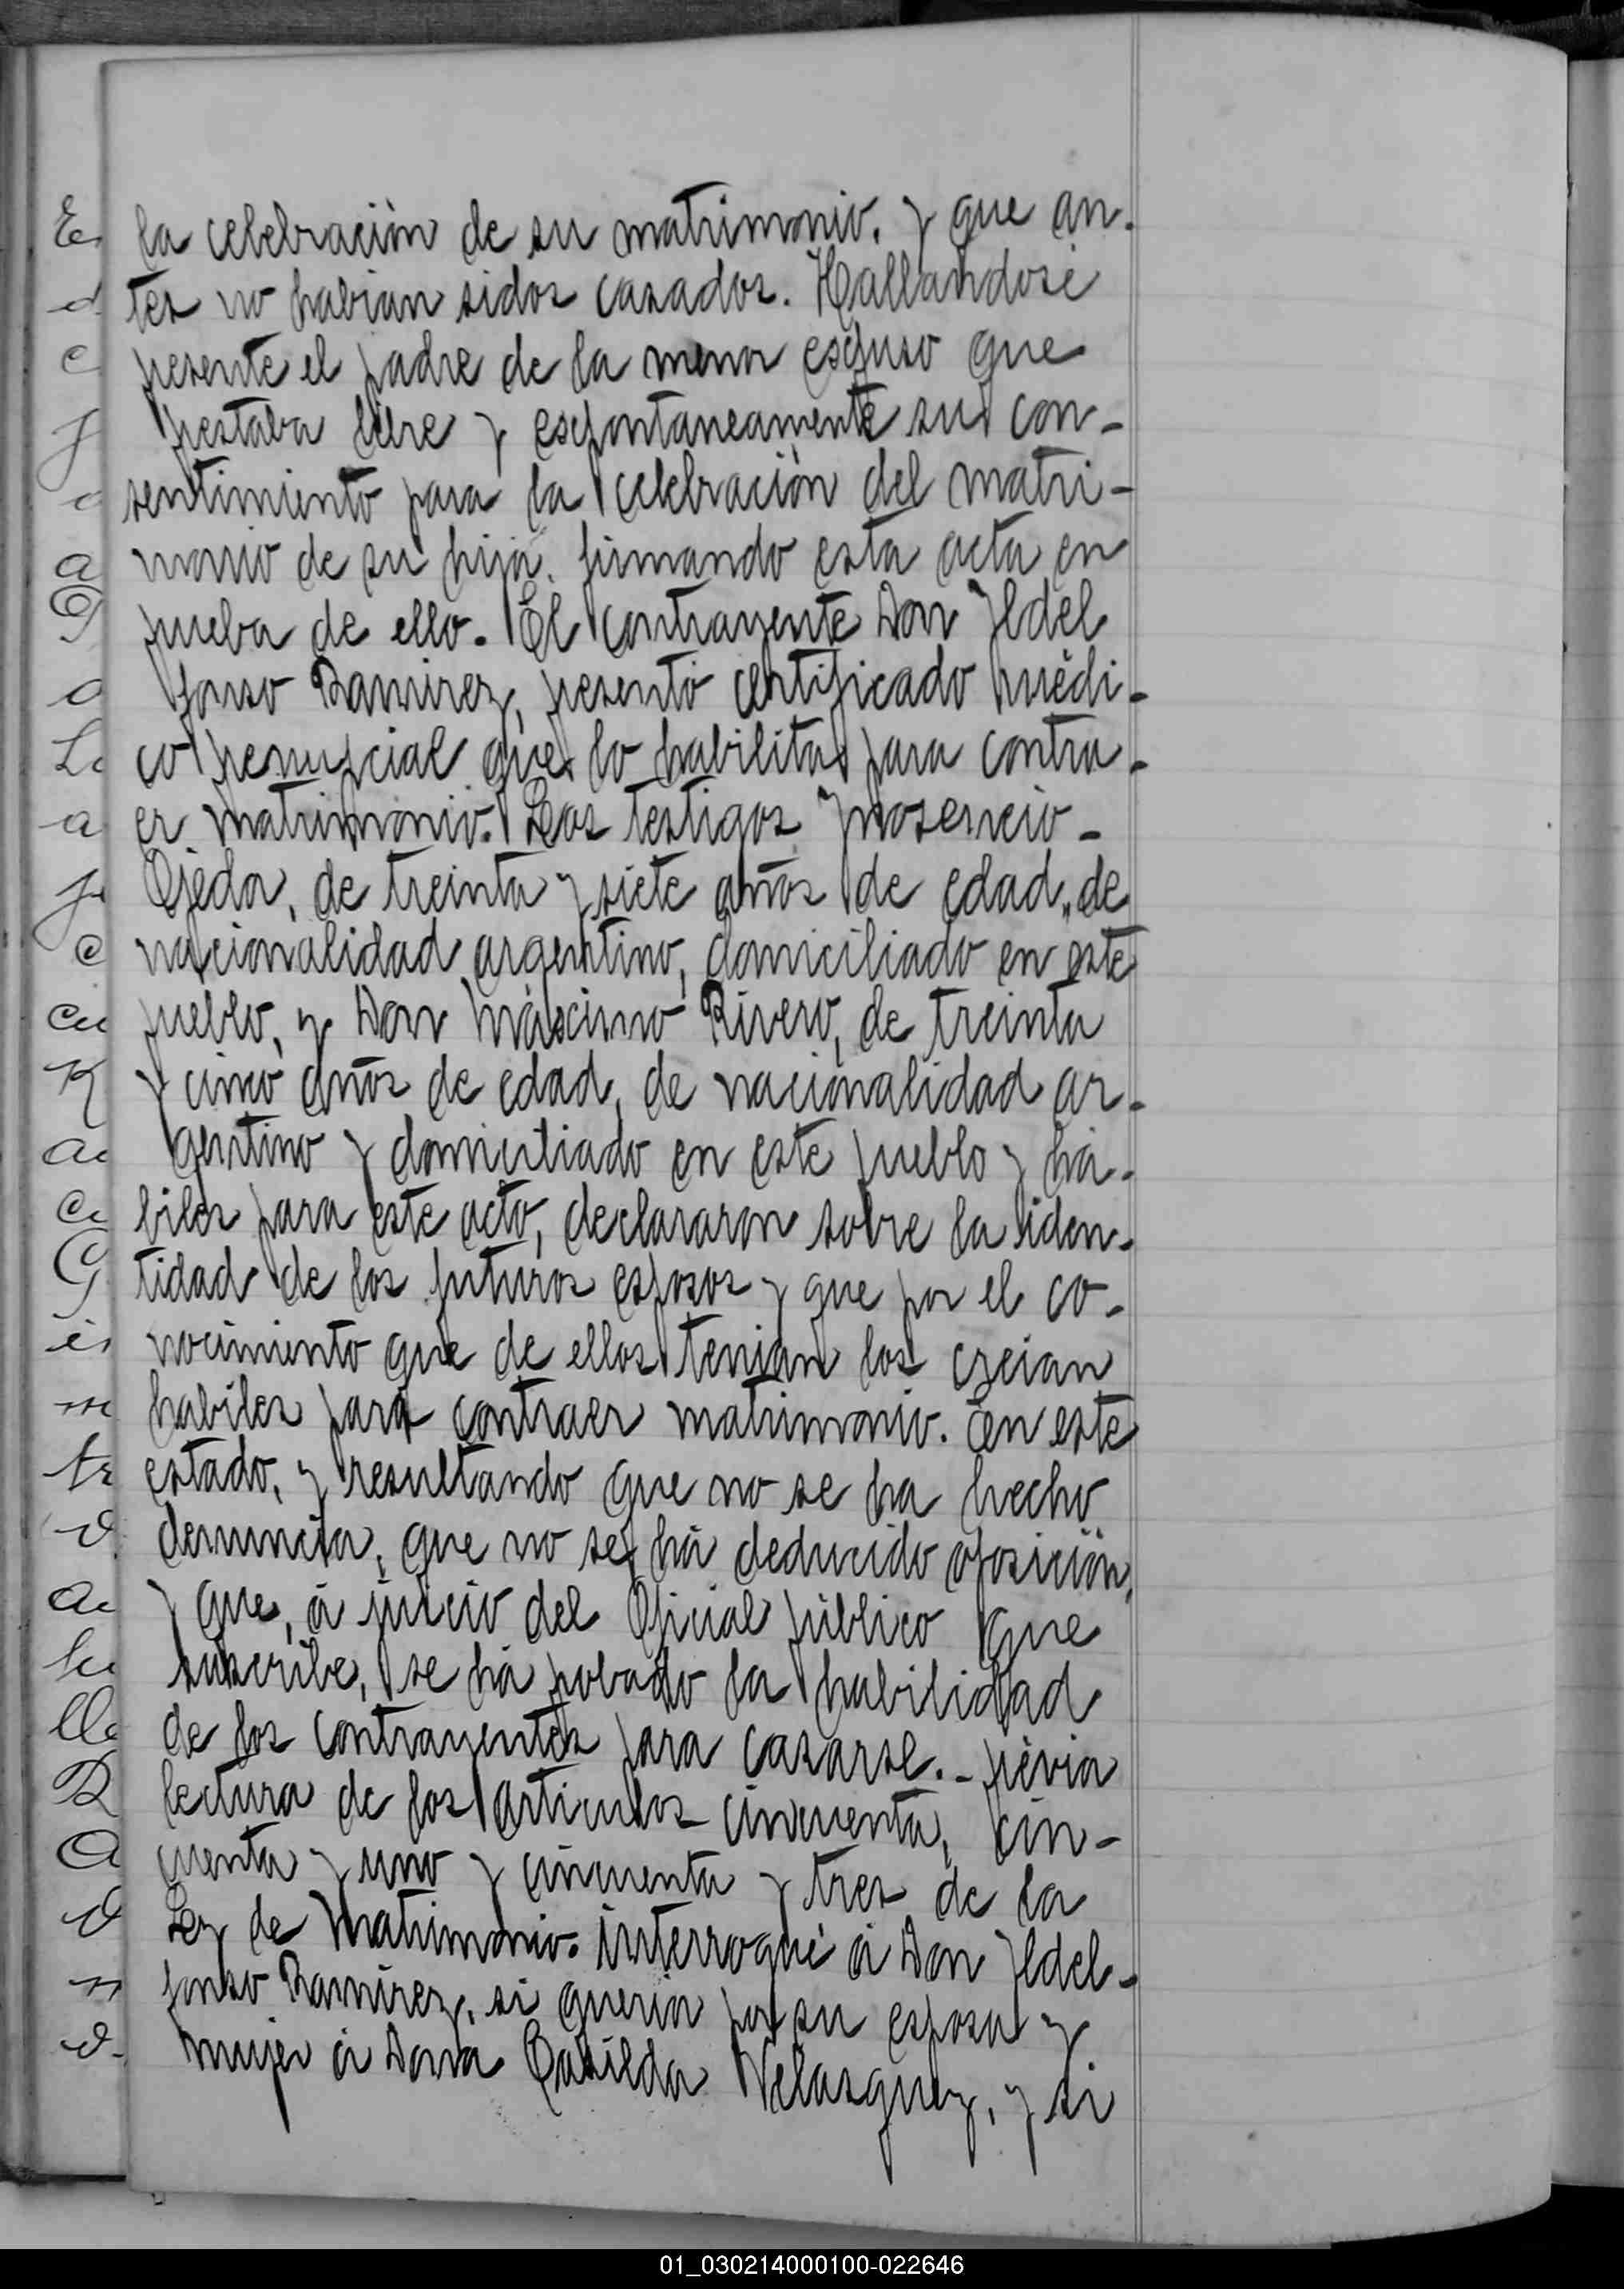 la celebraciòn de su matrimonio, y que an-
tes no habian sidos casados. Hallandose
presente el padre de la menor espuso que
prestaba libre y espontaneamente su con-
sentimiento para la celebraciòn del matri-
monio de su hija, firmando esta acta en
prueba de ello. El contrayente Don Ildel
fonso Ramirez, presentó certificado mèdi-
co prenupcial que lo habilita para contra-
er matrimonio. Los testigos
Ojeda, de treinta y siete años de edad, de
nacionalidad argentino, domiciliado en este
pueblo, y Don Màscimo Rivero, de treinta
y cinco años de edad, de nacionalidad ar-
gentino y domiciliado en este pueblo y hà-
biles para este acto, declararon sobre la iden-
tidad de los futuros esposos y que por el co-
nocimiento que de ellos tenian los creian
habiles para contraer matrimonio. En este
estado, y resultando que no se ha hecho
denuncia, que no se há deducido oposiciòn,
y que, à juicio del Oficial pùblico que
suscribe, se há probado la habilidad
de los contrayentes para casarse.- prèvia
lectura de los articulos cincuenta, cin-
cuenta y uno y cincuenta y tres de la
Ley de Matrimonio. interroguè à Don Ildel-
fonso Ramirez, si queria por su esposa y
mujer à Dona Casilda Velasquez, y si
01_030214000100-022646